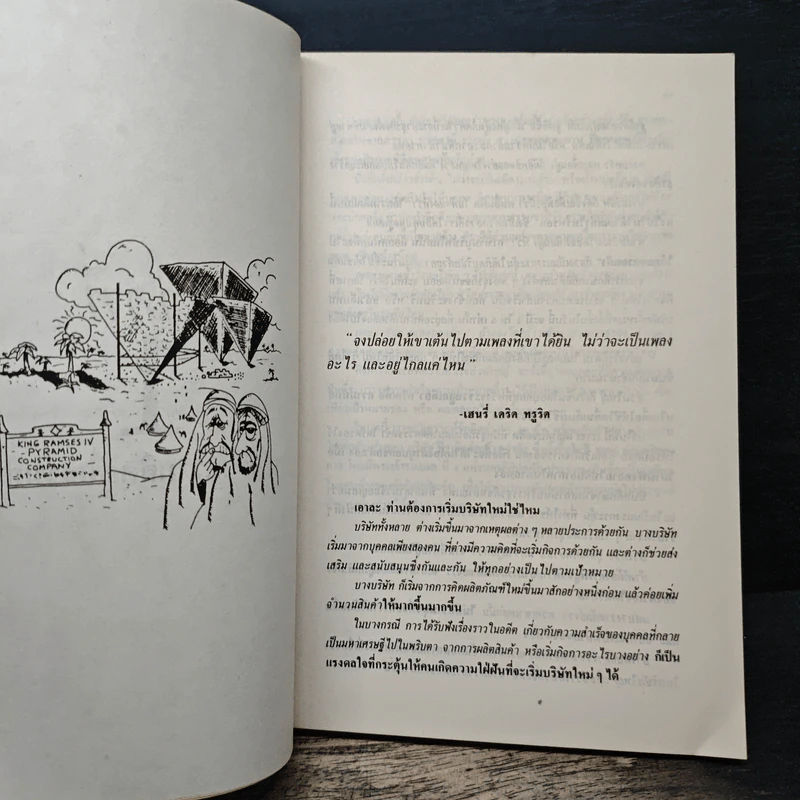 KING RAMSES IV
PYRAMID
CONSTRUCTION
COMPANY
"จงปล่อยให้เขาเต้นไปตามเพลงที่เขาได้ยิน ไม่ว่าจะเป็นเพลง
อะไร และอยู่ไกลแค่ไหน"
-เฮนรี่ เดริด ทรูริด
เอาละ ท่านต้องการเริ่มบริษัทใหม่ใช่ไหม
บริษัททั้งหลาย ต่างเริ่มขึ้นมาจากเหตุผลต่าง ๆ หลายประการด้วยกัน บางบริษัท
เริ่มมาจากบุคคลเพียงสองคน ที่ต่างมีความคิดที่จะเริ่มกิจการด้วยกัน และต่างก็ช่วยส่ง
เสริม และสนับสนุนซึ่งกันและกัน ให้ทุกอย่างเป็นไปตามเป้าหมาย
บางบริษัท ก็เริ่มจากการคิดผลิตภัณฑ์ใหม่ขึ้นมาสักอย่างหนึ่งก่อน แล้วค่อยเพิ่ม
จำนวนสินค้าให้มากขึ้นมากขึ้น
ในบางกรณี การได้รับฟังเรื่องราวในอดีต เกี่ยวกับความสำเร็จของบุคคลที่กลาย
เป็นมหาเศรษฐีไปในพริบตา จากการผลิตสินค้า หรือเริ่มกิจการอะไรบางอย่าง ก็เป็น
แรงดลใจที่กระตุ้นให้คนเกิดความใฝ่ฝันที่จะเริ่มบริษัทใหม่ ๆ ได้